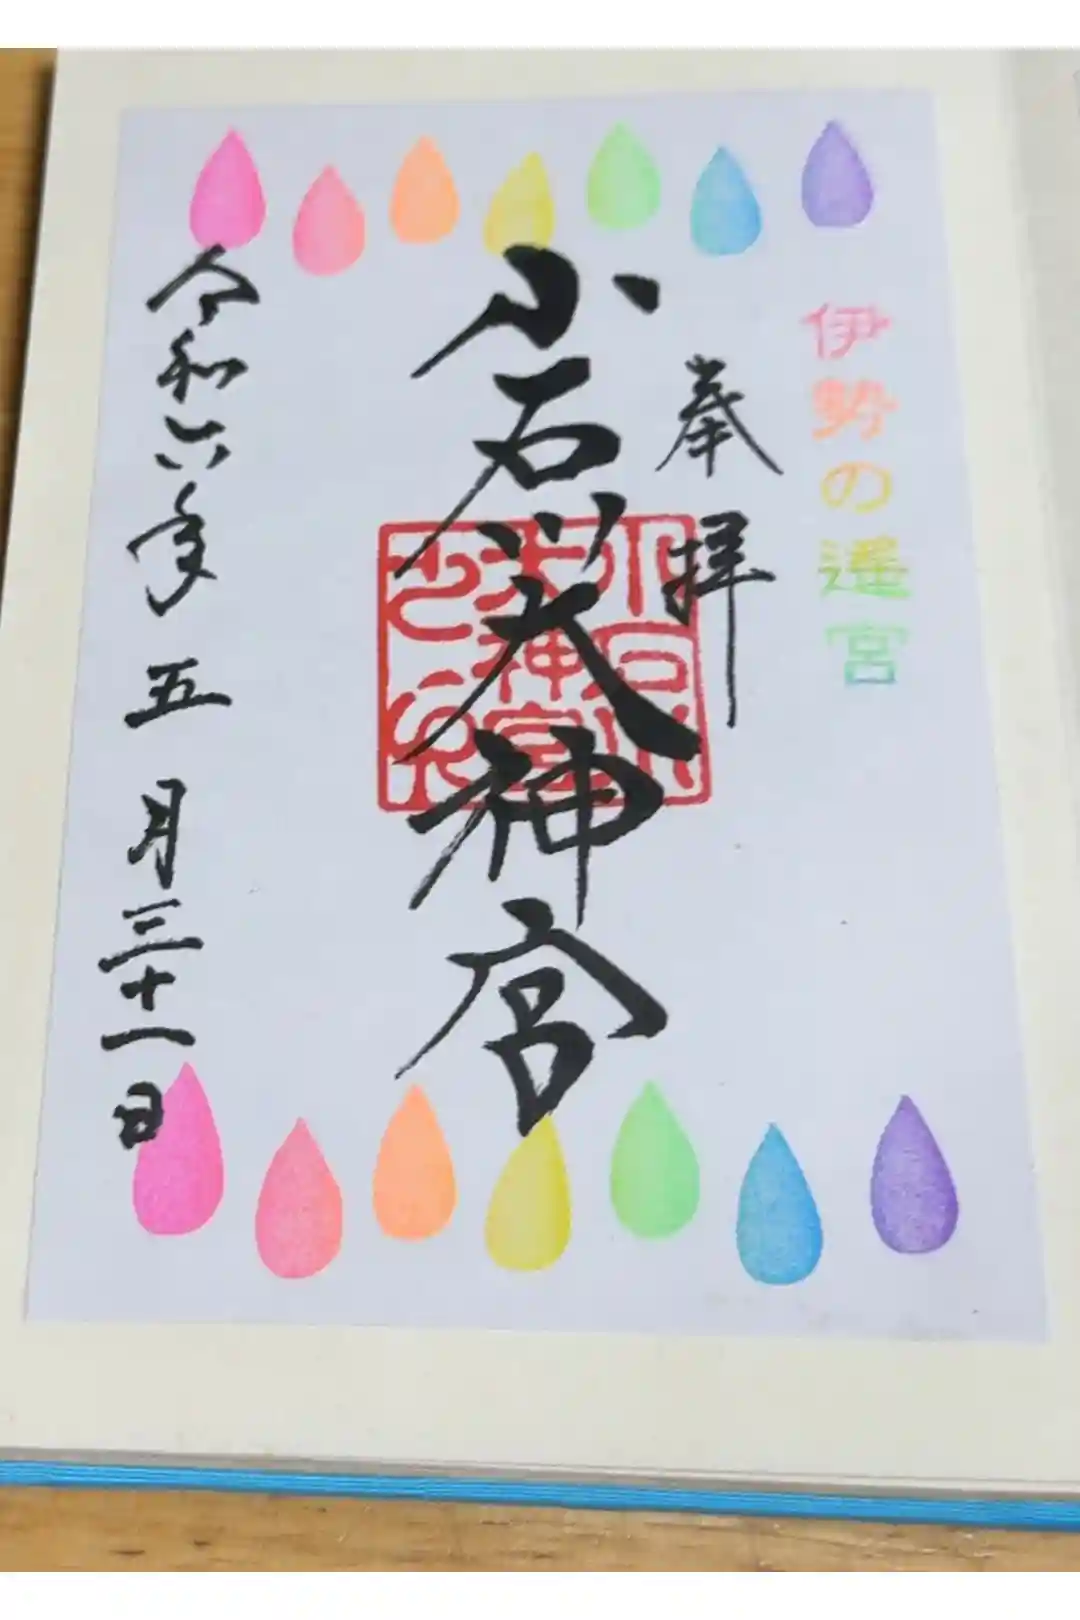 伊勢の遥宮
奉拝
小石川大神宮
小石川大神宮之印
令和六年五月三十一日